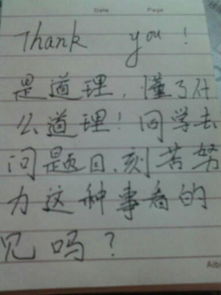 Date Page
Thank you!
是道理，懂了什
么道理！同学去
问题目，刻苦努
力这种事看的
见吗？